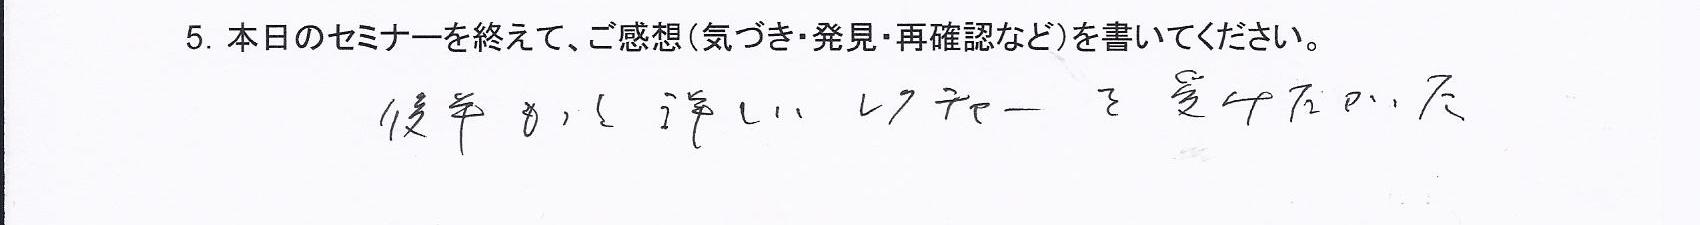 5. 本日のセミナーを終えて、ご感想（気づき・発見・再確認など）を書いてください。
後半もっと詳しいレクチャーを受けたかった